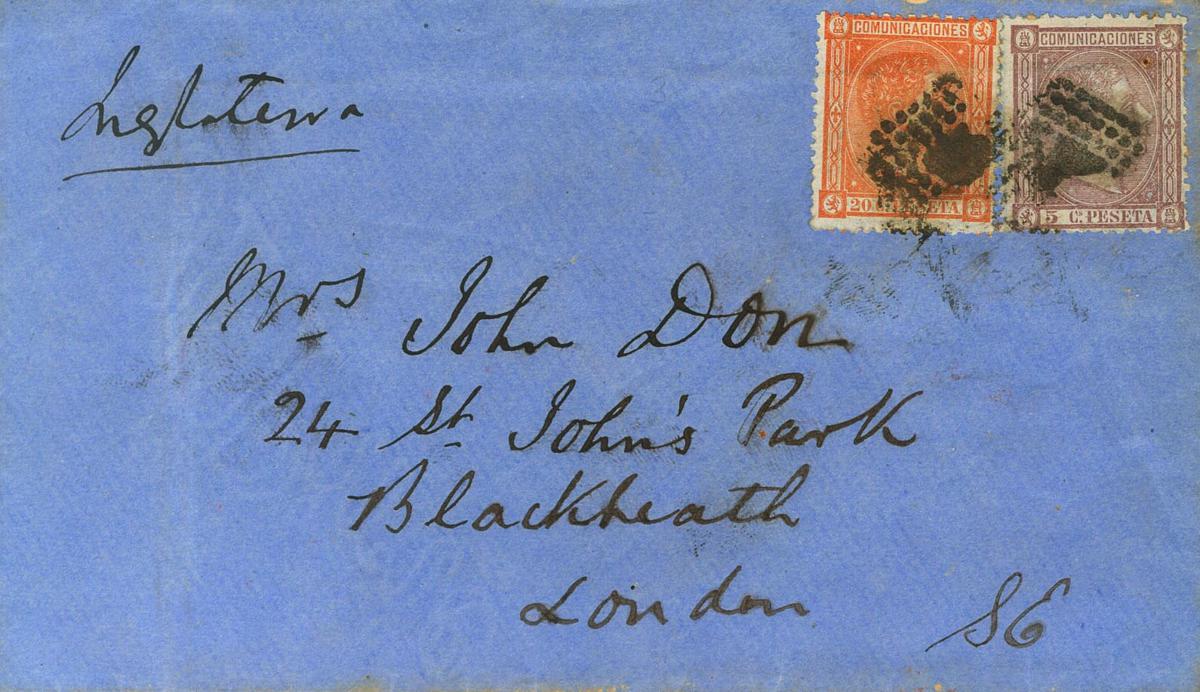 COMUNICACIONES COMUNICACIONES
Inglaterra
20 C. PESETA 5 Cs. PESETA
Mrs John Don
24 St. John's Park
Blackheath
London
SE